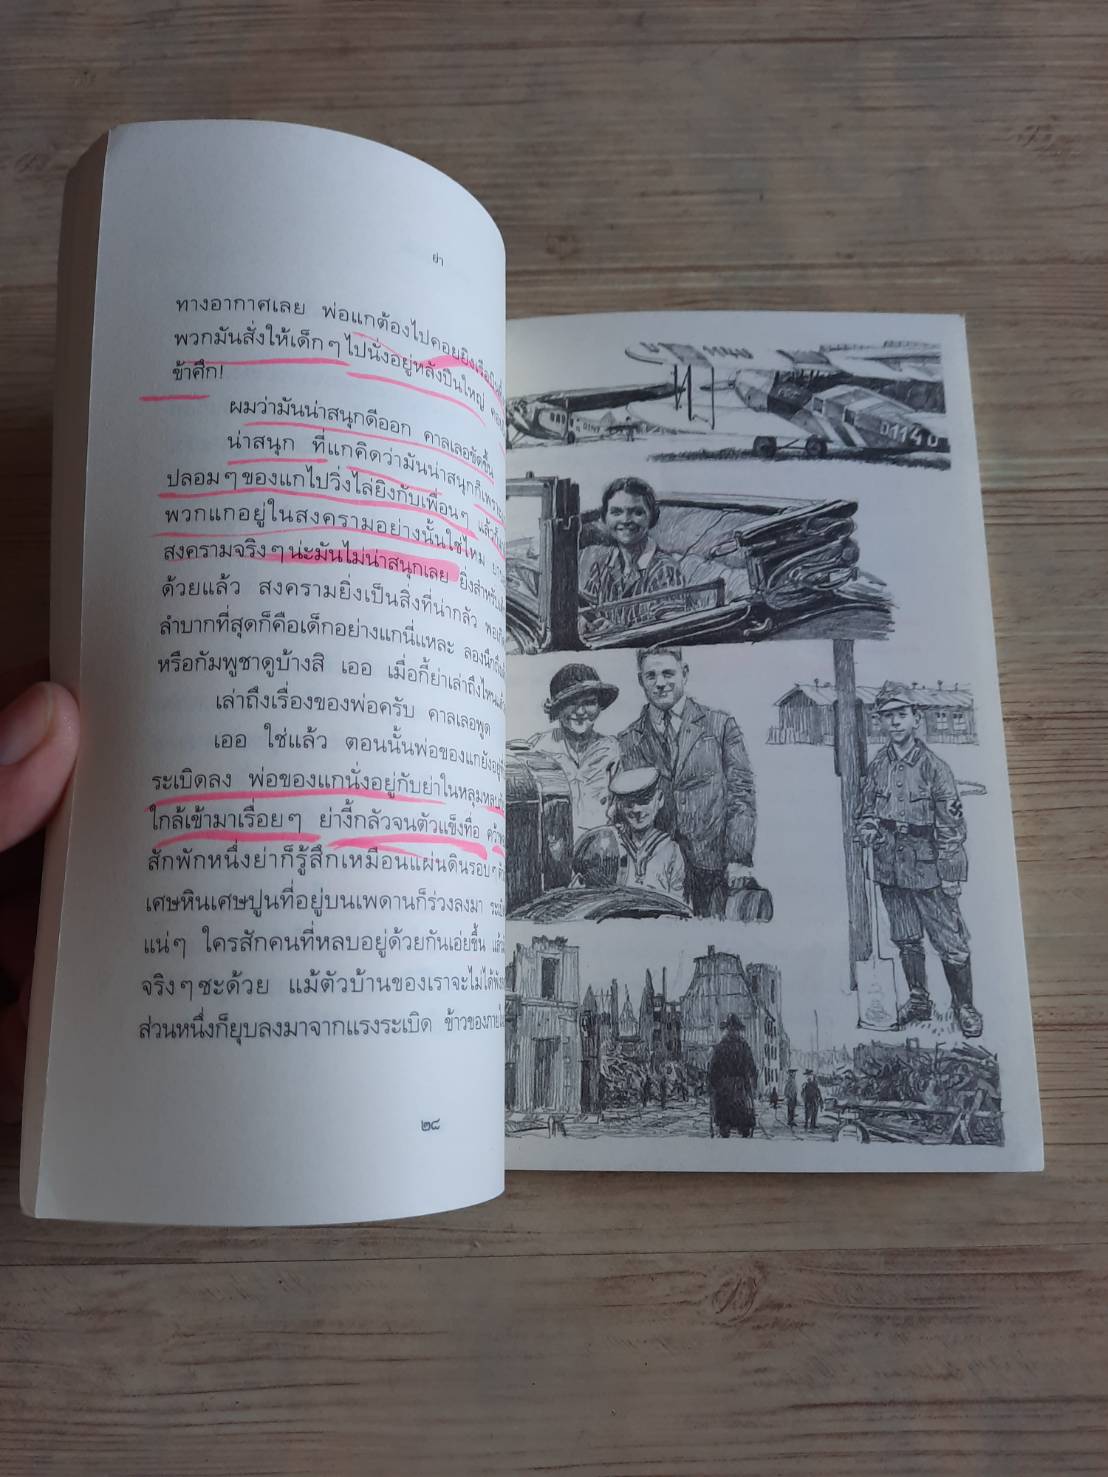 ย่า
ทางอากาศเลย พ่อแกต้องไปคอยยิงเรือบิน
พวกมันสั่งให้เด็กๆ ไปนั่งอยู่หลังปืนใหญ่
ข้าศึก!
ผมว่ามันน่าสนุกดีออก คาลเลอขัดขึ้น
น่าสนุก ที่แกคิดว่ามันน่าสนุกก็เพราะ
ปลอมๆ ของแกไปวิ่งไล่ยิงกับเพื่อนๆ แล้วก็
พวกแกอยู่ในสงครามอย่างนั้นใช่ไหม
สงครามจริงๆ น่ะมันไม่น่าสนุกเลย ยิ่งสำหรับ
ด้วยแล้ว สงครามยิ่งเป็นสิ่งที่น่ากลัว
ลำบากที่สุดก็คือเด็กอย่างแกนี่แหละ ลองนึกถึง
หรือกัมพูชาดูบ้างสิ เออ เมื่อกี้ย่าเล่าถึงไหนแล้ว
เล่าถึงเรื่องของพ่อครับ คาลเลอพูด
เออ ใช่แล้ว ตอนนั้นพ่อของแกยังอยู่
ระเบิดลง พ่อของแกนั่งอยู่กับย่าในหลุมหลบภัย
ใกล้เข้ามาเรื่อยๆ ย่างี้กลัวจนตัวแข็งทื่อ
สักพักหนึ่งย่าก็รู้สึกเหมือนแผ่นดินรอบๆ
เศษหินเศษปูนที่อยู่บนเพดานก็ร่วงลงมา
แน่ๆ ใครสักคนที่หลบอยู่ด้วยกันเอ่ยขึ้น
จริงๆ ซะด้วย แม้ตัวบ้านของเราจะไม่ได้พัง
ส่วนหนึ่งก็ยุบลงมาจากแรงระเบิด ข้าวของภายใน
๒๘
D1140